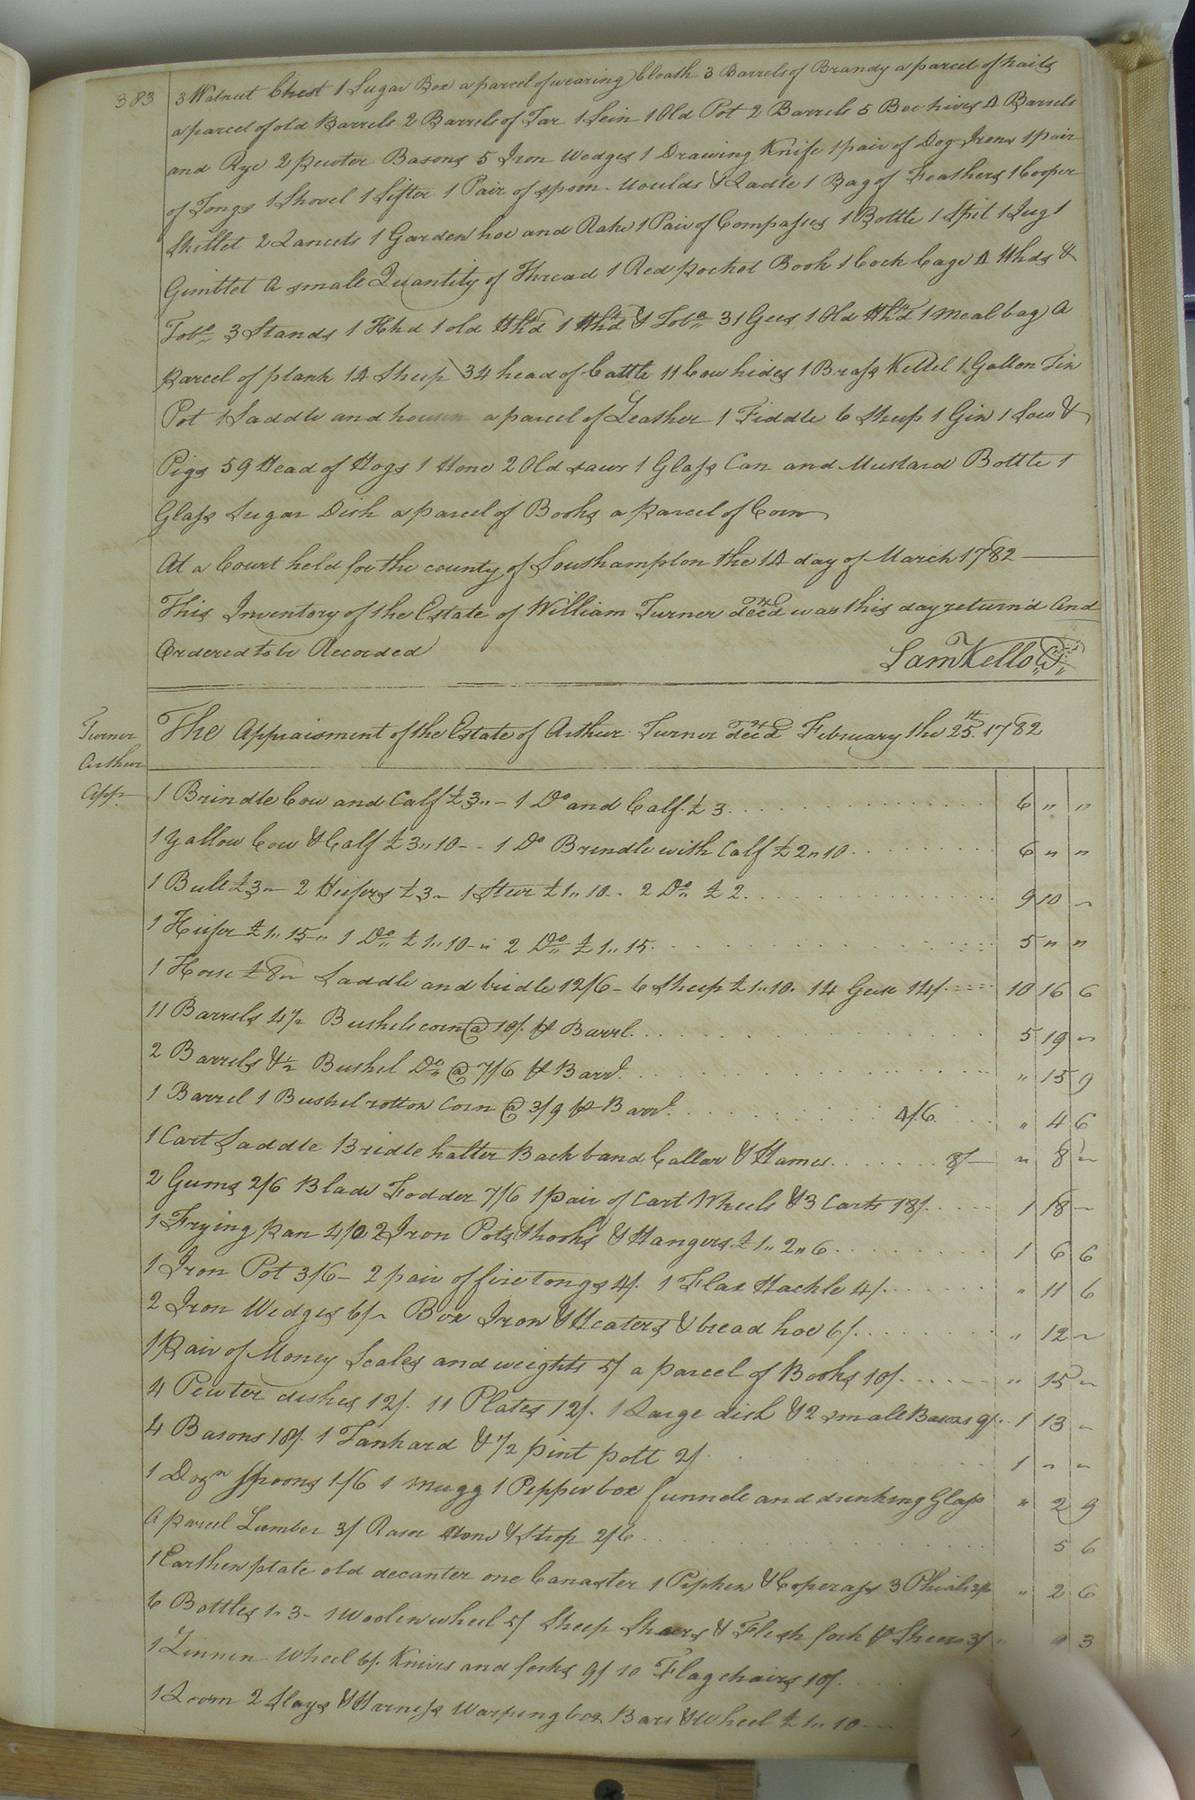 383
3 Walnut Chest 1 Sugar Box a parcel of wearing Cloath 3 Barrels of Brandy a parcel of nails
a parcel of old Barrels 2 Barrels of Tar 1 Sein 1 Old Pot 2 Barrels 5 Bee hives 4 Barrels
and Rye 2 pewter Basons 5 Iron wedges 1 Drawing Knife 1 pair of Dog Irons 1 pair
of Tongs 1 Shovel 1 Sifter 1 Pair of spoon moulds & Ladle 1 Bag of Feathers 1 Cooper
Skillet 2 Lancets 1 Garden hoe and Rake 1 Pair of Compasses 1 Bottle 1 Spit 1 Jug 1
Gimblet a small Quantity of Thread 1 Red pocket Book 1 Cock Cage 4 Hhds &
Tobo 3 Stands 1 Hhd 1 old Hhd 1 Hhd & Tobo 31 Gees 1 Old Hhd 1 meal bag a
parcel of plank 14 Sheep 34 head of Cattle 11 Cow hides 1 Brass Kettel 1 Gallon Tin
Pot 1 Saddle and housen a parcel of Leather 1 Fiddle 6 Sheep 1 Gin 1 Sow &
Pigs 59 Head of Hogs 1 Hone 2 Old saws 1 Glass Can and Mustard Bottle 1
Glass Sugar Dish a parcel of Books a parcel of Corn
At a Court held for the county of Southampton the 14 day of March 1782
This Inventory of the Estate of William Turner decd was this day return'd And
Ordered to be Recorded
Sam Kello
Turner
Arthur
App
The Appraisment of the Estate of Arthur Turner decd February the 25th 1782
1 Brindle Cow and Calf £3,,- 1 Do and Calf £3 6 " "
1 Yallow Cow & Calf £3,,10- - 1 Do Brindle with Calf £2,,10 6 " "
1 Bull £3,,- 2 Heifers £3- 1 Steer £1,,10.. 2 Do £2 9 10 -
1 Heifer £1,,15-,, 1 Do £1,,10-,, 2 Do £1,,15. 5 " "
1 Horse £8,,- Saddle and bridle 12/6- 6 Sheep £1,,10. 14 Geese 14/. 10 16 6
11 Barrels 4½ Bushels corn @ 10/. ⅌ Barrl 5 19 -
2 Barrels & ½ Bushel Do @ 7/6 ⅌ Barrl. " 15 9
1 Barrel 1 Bushel rotton Corn @ 3/9 ⅌ Barrl. 4/6 " 4 6
1 Cart Saddle Bridle halter Back band Collar & Hames 8/- " 8 -
2 Gums 2/6 Blade Fodder 7/6 1 pair of Cart Wheels & 3 Carts 18/. 1 18 -
1 Frying pan 4/0 2 Iron Pots hooks & Hangers £1,,2,,6 1 6 6
1 Iron Pot 3/6- 2 pair of fire tongs 4/. 1 Flax Hackle 4/. " 11 6
2 Iron Wedges 6/- Box Iron & Heaters & bread hoe 6/. " 12 -
1 Pair of Money Scales and weights 5/ a parcel of Books 10/. " 15 -
4 Pewter dishes 12/. 11 Plates 12/. 1 Large dish & 2 small Basons 9/. 1 13 -
4 Basons 18/. 1 Tankard & ½ pint pott 2/ 1 - -
1 Dozn Spoons 1/6 1 mugg 1 Pepper box funnele and drinking Glass " 2 9
a parcel Lumber 3/ Rasor Hone & Strop 2/6 5 6
1 Earthen plate old decanter one Canaster 1 Pipkin & Coperass 3 Phials " 2 6
6 Bottles 1.. 3- 1 Woolen wheel 5/ Sheep Shears & Flesh fork & Shears 3/ " 9 3
1 Linnen Wheel 6/. Knives and forks 9/ 10 Flag chairs 10/.
1 Loom 2 Slays & Harness Warping box Bars & Wheel £1,,10